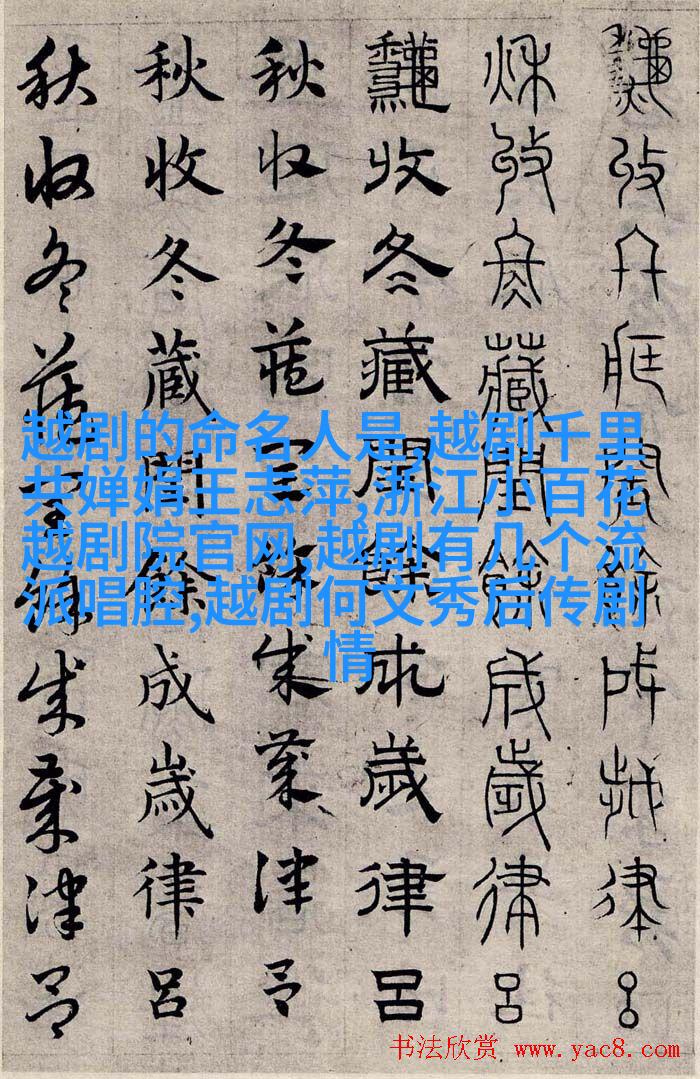 秋收冬藏閏餘成歲律呂
秋收冬藏閏餘成歲律呂
龝收冬藏閏餘成歲律呂
秋收冬藏閏餘成歲律呂
秋收冬藏閏餘成歲律呂
秋收冬藏閏餘成歲律呂
越剧的命名人是,越剧千里
共婵娟王志萍,浙江小百花
越剧院官网,越剧有几个流
派唱腔,越剧何文秀后传剧
情
书法欣赏 www.yac8.com